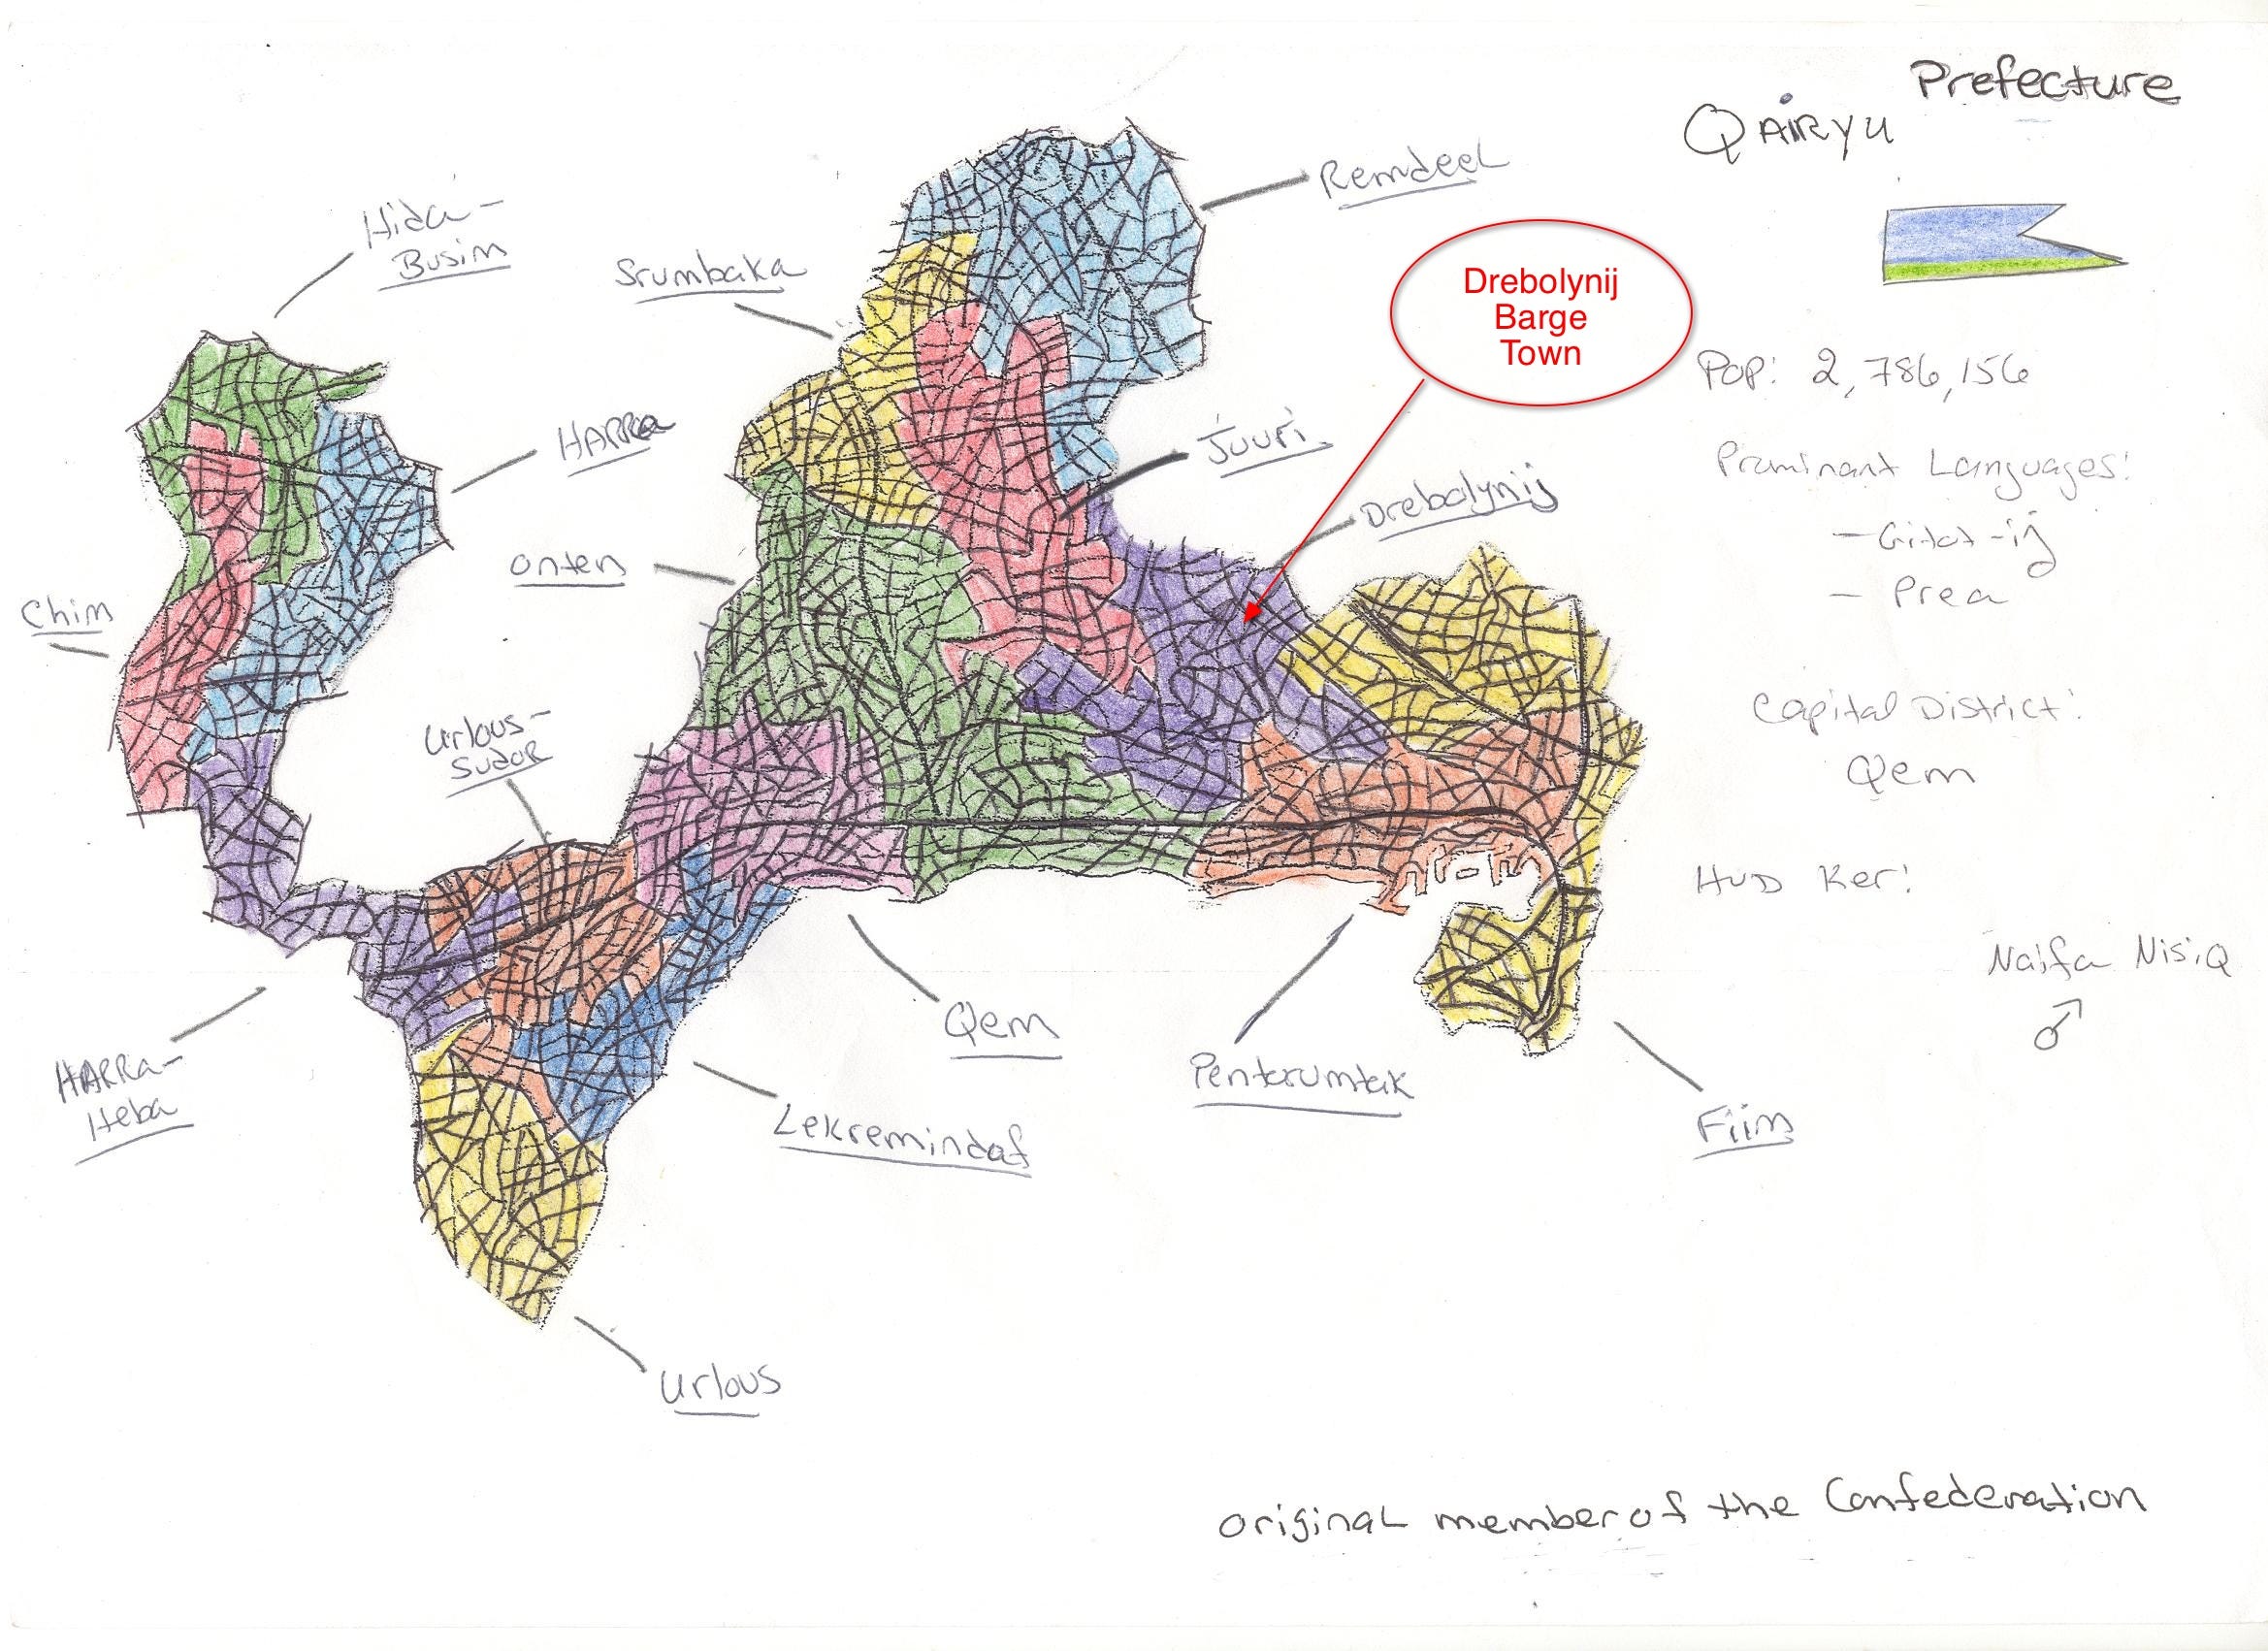 Prefecture
QAIRYU
Remdeel
Hida-
Busim
Srumbaka
Drebolynij
Barge
Town
Pop: 2,786,156
HARRa
Juuri
Prominant Languages:
- Gitat-ij
- Prea
Drebolynij
onten
Chim
Capital District:
Qem
Urlous-
Sudor
HUD Ker:
Naifa Nisiq
♂
Qem
HARRa-
Heba
Pentarumtak
Lekremindaf
Fiim
Urlous
original member of the Confederation